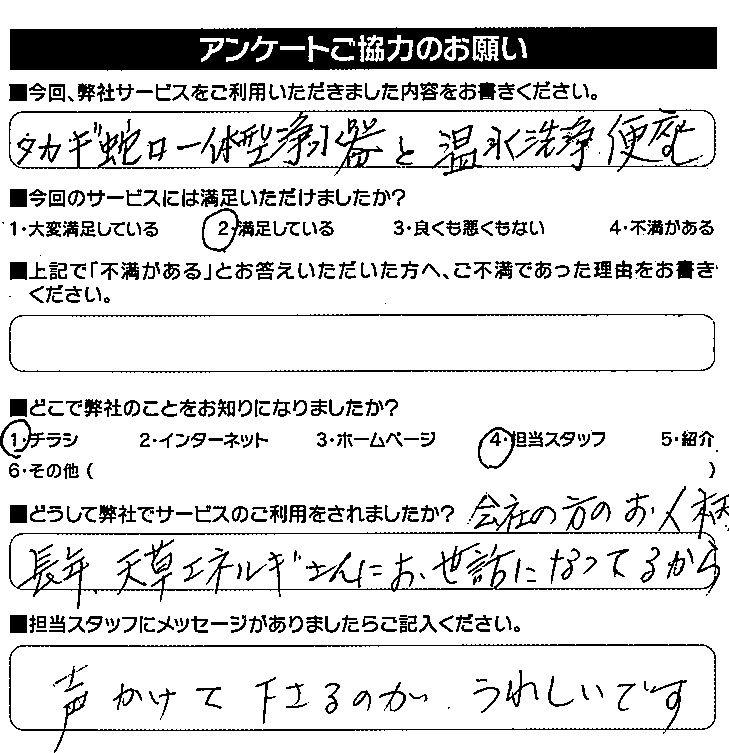 アンケートご協力のお願い
■今回、弊社サービスをご利用いただきました内容をお書きください。
タカギ蛇口一体型浄水器と温水洗浄便座
■今回のサービスには満足いただけましたか?
1・大変満足している 2・満足している 3・良くも悪くもない 4・不満がある
■上記で「不満がある」とお答えいただいた方へ、ご不満であった理由をお書き
ください。
■どこで弊社のことをお知りになりましたか?
1・チラシ 2・インターネット 3・ホームページ 4・担当スタッフ 5・紹介
6・その他( )
■どうして弊社でサービスのご利用をされましたか? 会社の方のお人柄
長年、天草エネルギさんにお世話になってるから
■担当スタッフにメッセージがありましたらご記入ください。
声かけて下さるのが、うれしいです